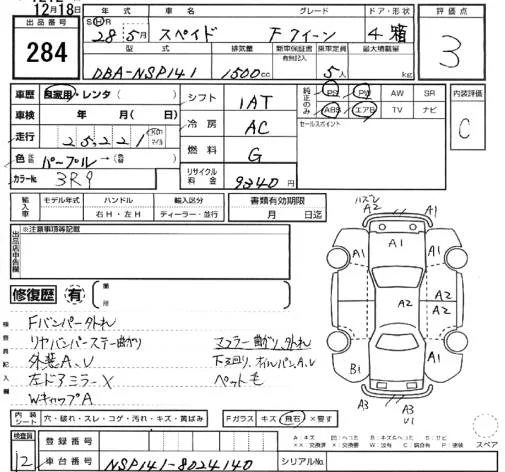 12月18日
年式 車名 グレード ドア・形状 評価点
出品番号 SⒽR
28 5月 スペイド Fクイーン 4 箱 3
284
型式 排気量 新車保証書 有無記入 乗車定員 最大積載量
DBA-NSP141 1500cc 5人 kg
車歴 自家用・レンタ( ) シフト 1AT 純正のみ PS PW AW SR 内装評価
ABS エアB TV ナビ C
車検 年 月( 日) 冷房 AC セールスポイント
走行 25,221 Km マイル
燃料 G
色 元色 パープル→(色替 )
カラーNo 3R9 リサイクル料金 9240円
輸入車 モデル年式 ハンドル 輸入区分 書類有効期限
右H・左H ディーラー・並行 月 日迄
出品店申告欄 ※注意事項等記載
ハズレ
A2 A1
A1
A1 A1
A2 A2
A2
B1 A1
A3 A3
U1
修復歴 有 箇所
検査員記入欄
Fバンパー外れ
リヤバンパーステー曲がり マフラー曲がり、外れ
外装A、U 下回り、オイルパンA、U
左ドアミラーX ペット毛
WキャップA
内装シート 穴・破れ・スレ・コゲ・汚れ・キズ・黄ばみ Fガラス キズ 飛石 ×要す
検査員 12 登録番号
スペア
車台番号 NSP141-8024140 シリアルNo.